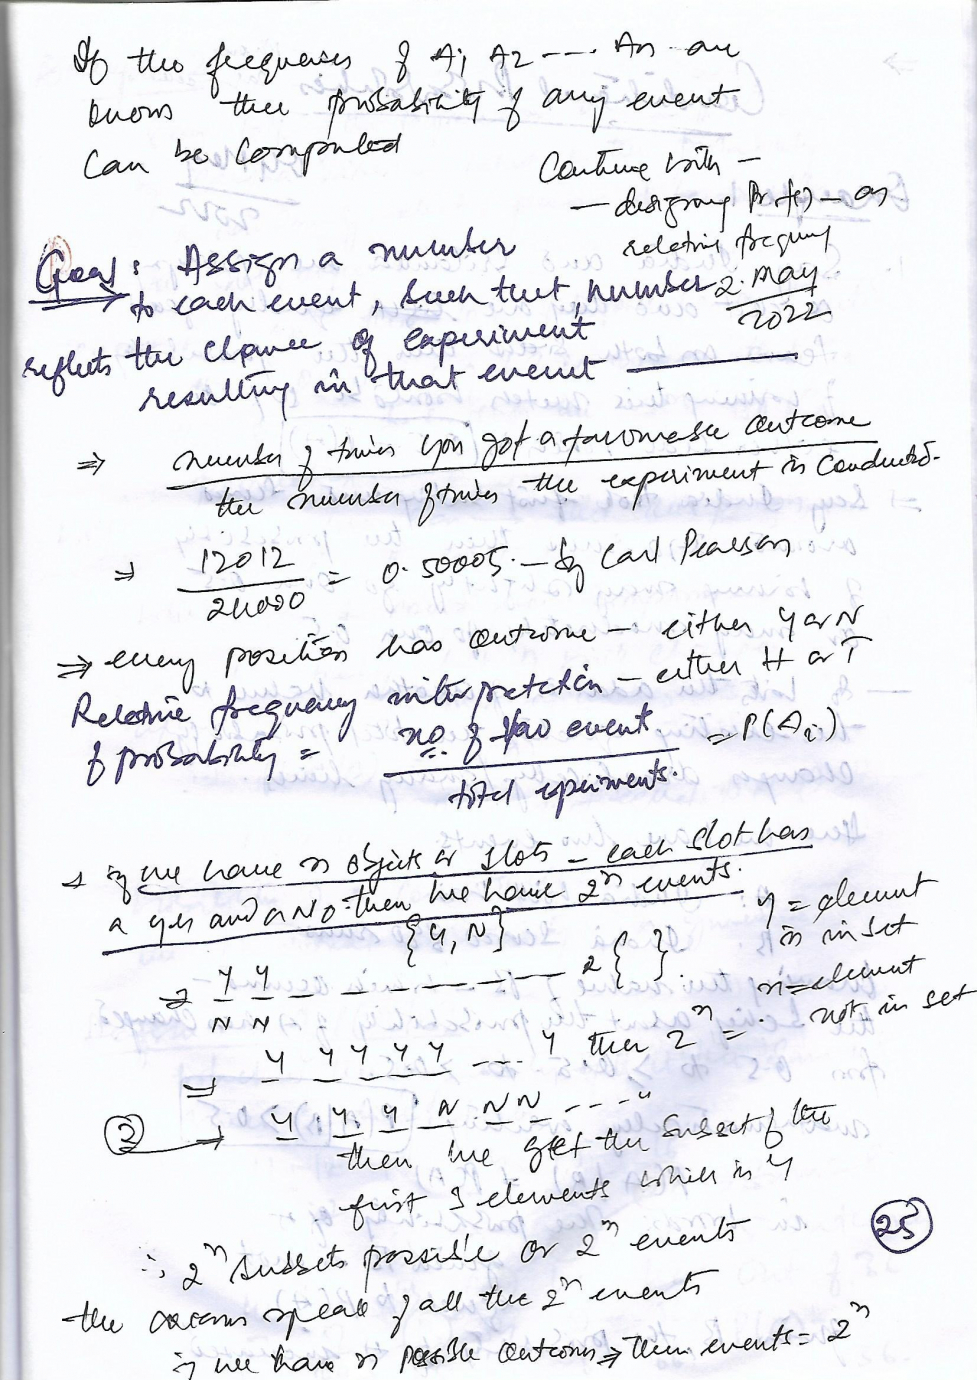 If the frequencies of A1 A2 --- An are
known the probability of any event
can be computed
Continue with -
- designing Pr f() - as
relative frequency
2. May
2022
Goal: Assign a number
to each event, such that, number
reflects the chance of experiment
resulting in that event
⇒ number of times you got a favourable outcome
the number of times the experiment is conducted.
⇒ 12012
24000 = 0.50005. - by Carl Pearson
⇒ every position has outcome - either Y or N
- either H or T
Relative frequency interpretation
of probability = no. of fav event = P(Ai)
total experiments.
→ if we have n objects or slots - each slot has
a yes and a No. then we have 2^n events.
{Y, N}
⇒ Y Y _ _ - - - - - 2 { }.
N N
y = element
is in set
n = element
not in set
⇒ Y Y Y Y Y ---- Y then 2^n =
③ → Y Y Y N N N ---- "
then we get the subset of the
first 3 elements which is Y
25
∴ 2^n subsets possible or 2^n events
the axioms speak of all the 2^n events
if we have n possible outcomes ⇒ then events = 2^n